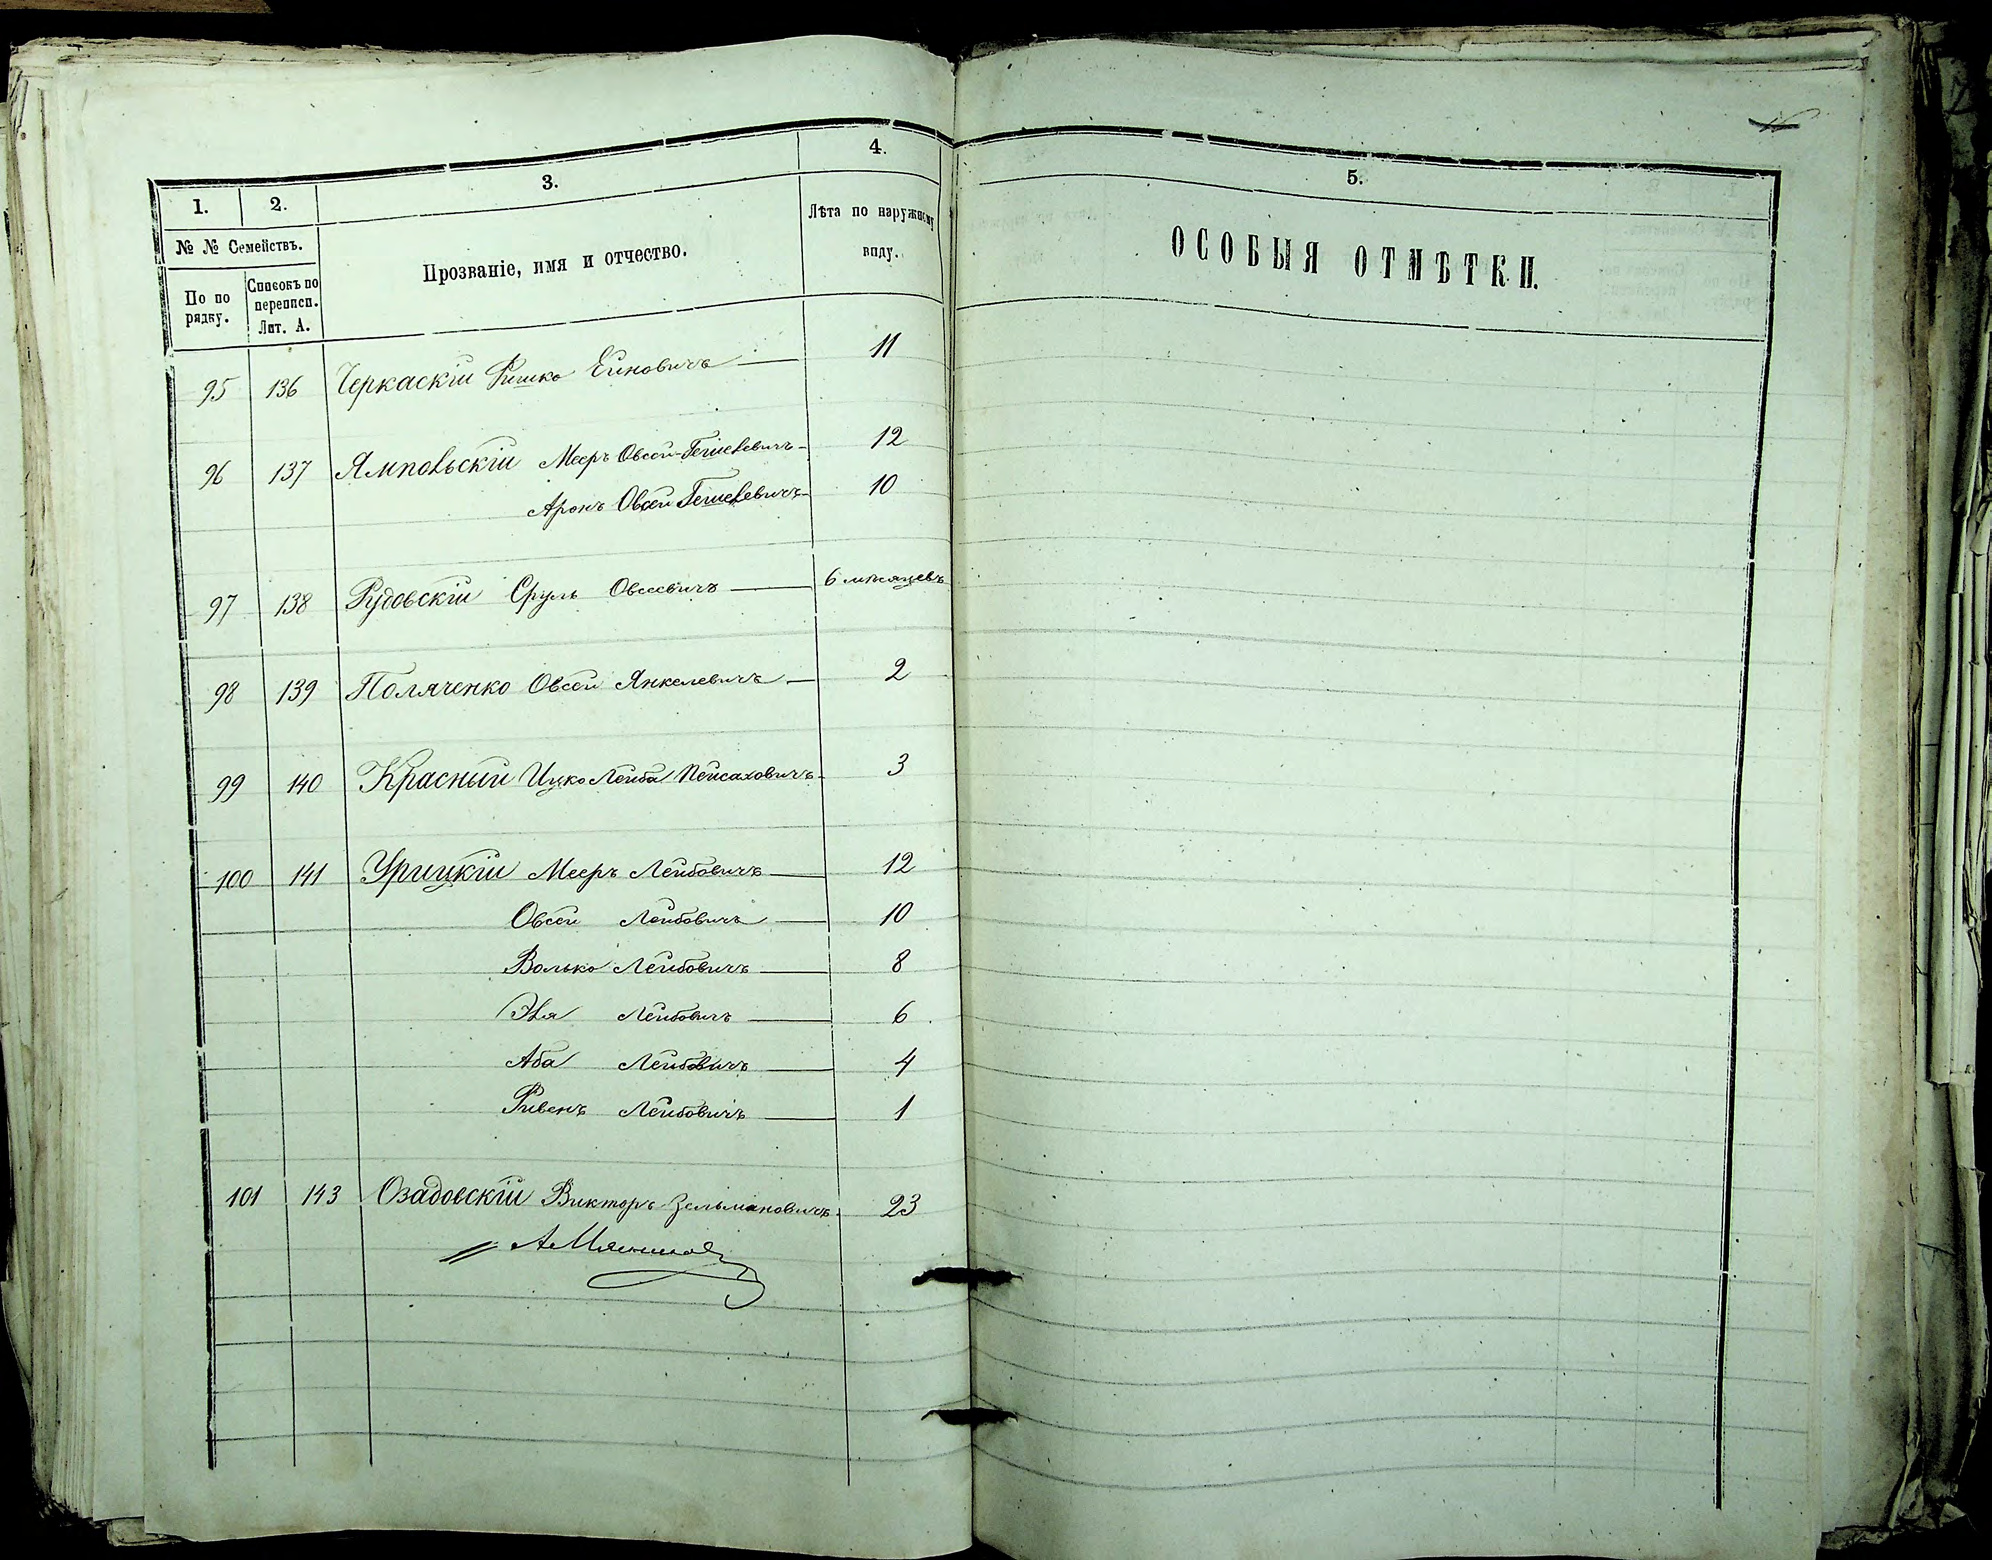 1. 2. 3. 4. 5.
№ № Семействъ.
По по рядку.
Списокъ по переписи. Лит. А.
Прозваніе, имя и отчество.
Лѣта по наружному виду.
ОСОБЫЯ ОТМѢТКИ.
95 136 Черкаскій 11
96 137 Ямпольскій Мееръ Овсей-Гешелевичъ 12
Аронъ Овсей Гешелевичъ 10
97 138 Рудовскій Сруль Овсеевичъ 6 мѣсяцевъ
98 139 Поляченко Овсей Янкелевичъ 2
99 140 Красный Ицко Лейба Пейсаховичъ 3
100 141 Урицкій Мееръ Лейбовичъ 12
Овсей Лейбовичъ 10
Волько Лейбовичъ 8
Эля Лейбовичъ 6
Аба Лейбовичъ 4
Рувенъ Лейбовичъ 1
101 143 Озадовскій Викторъ Зельмановичъ 23